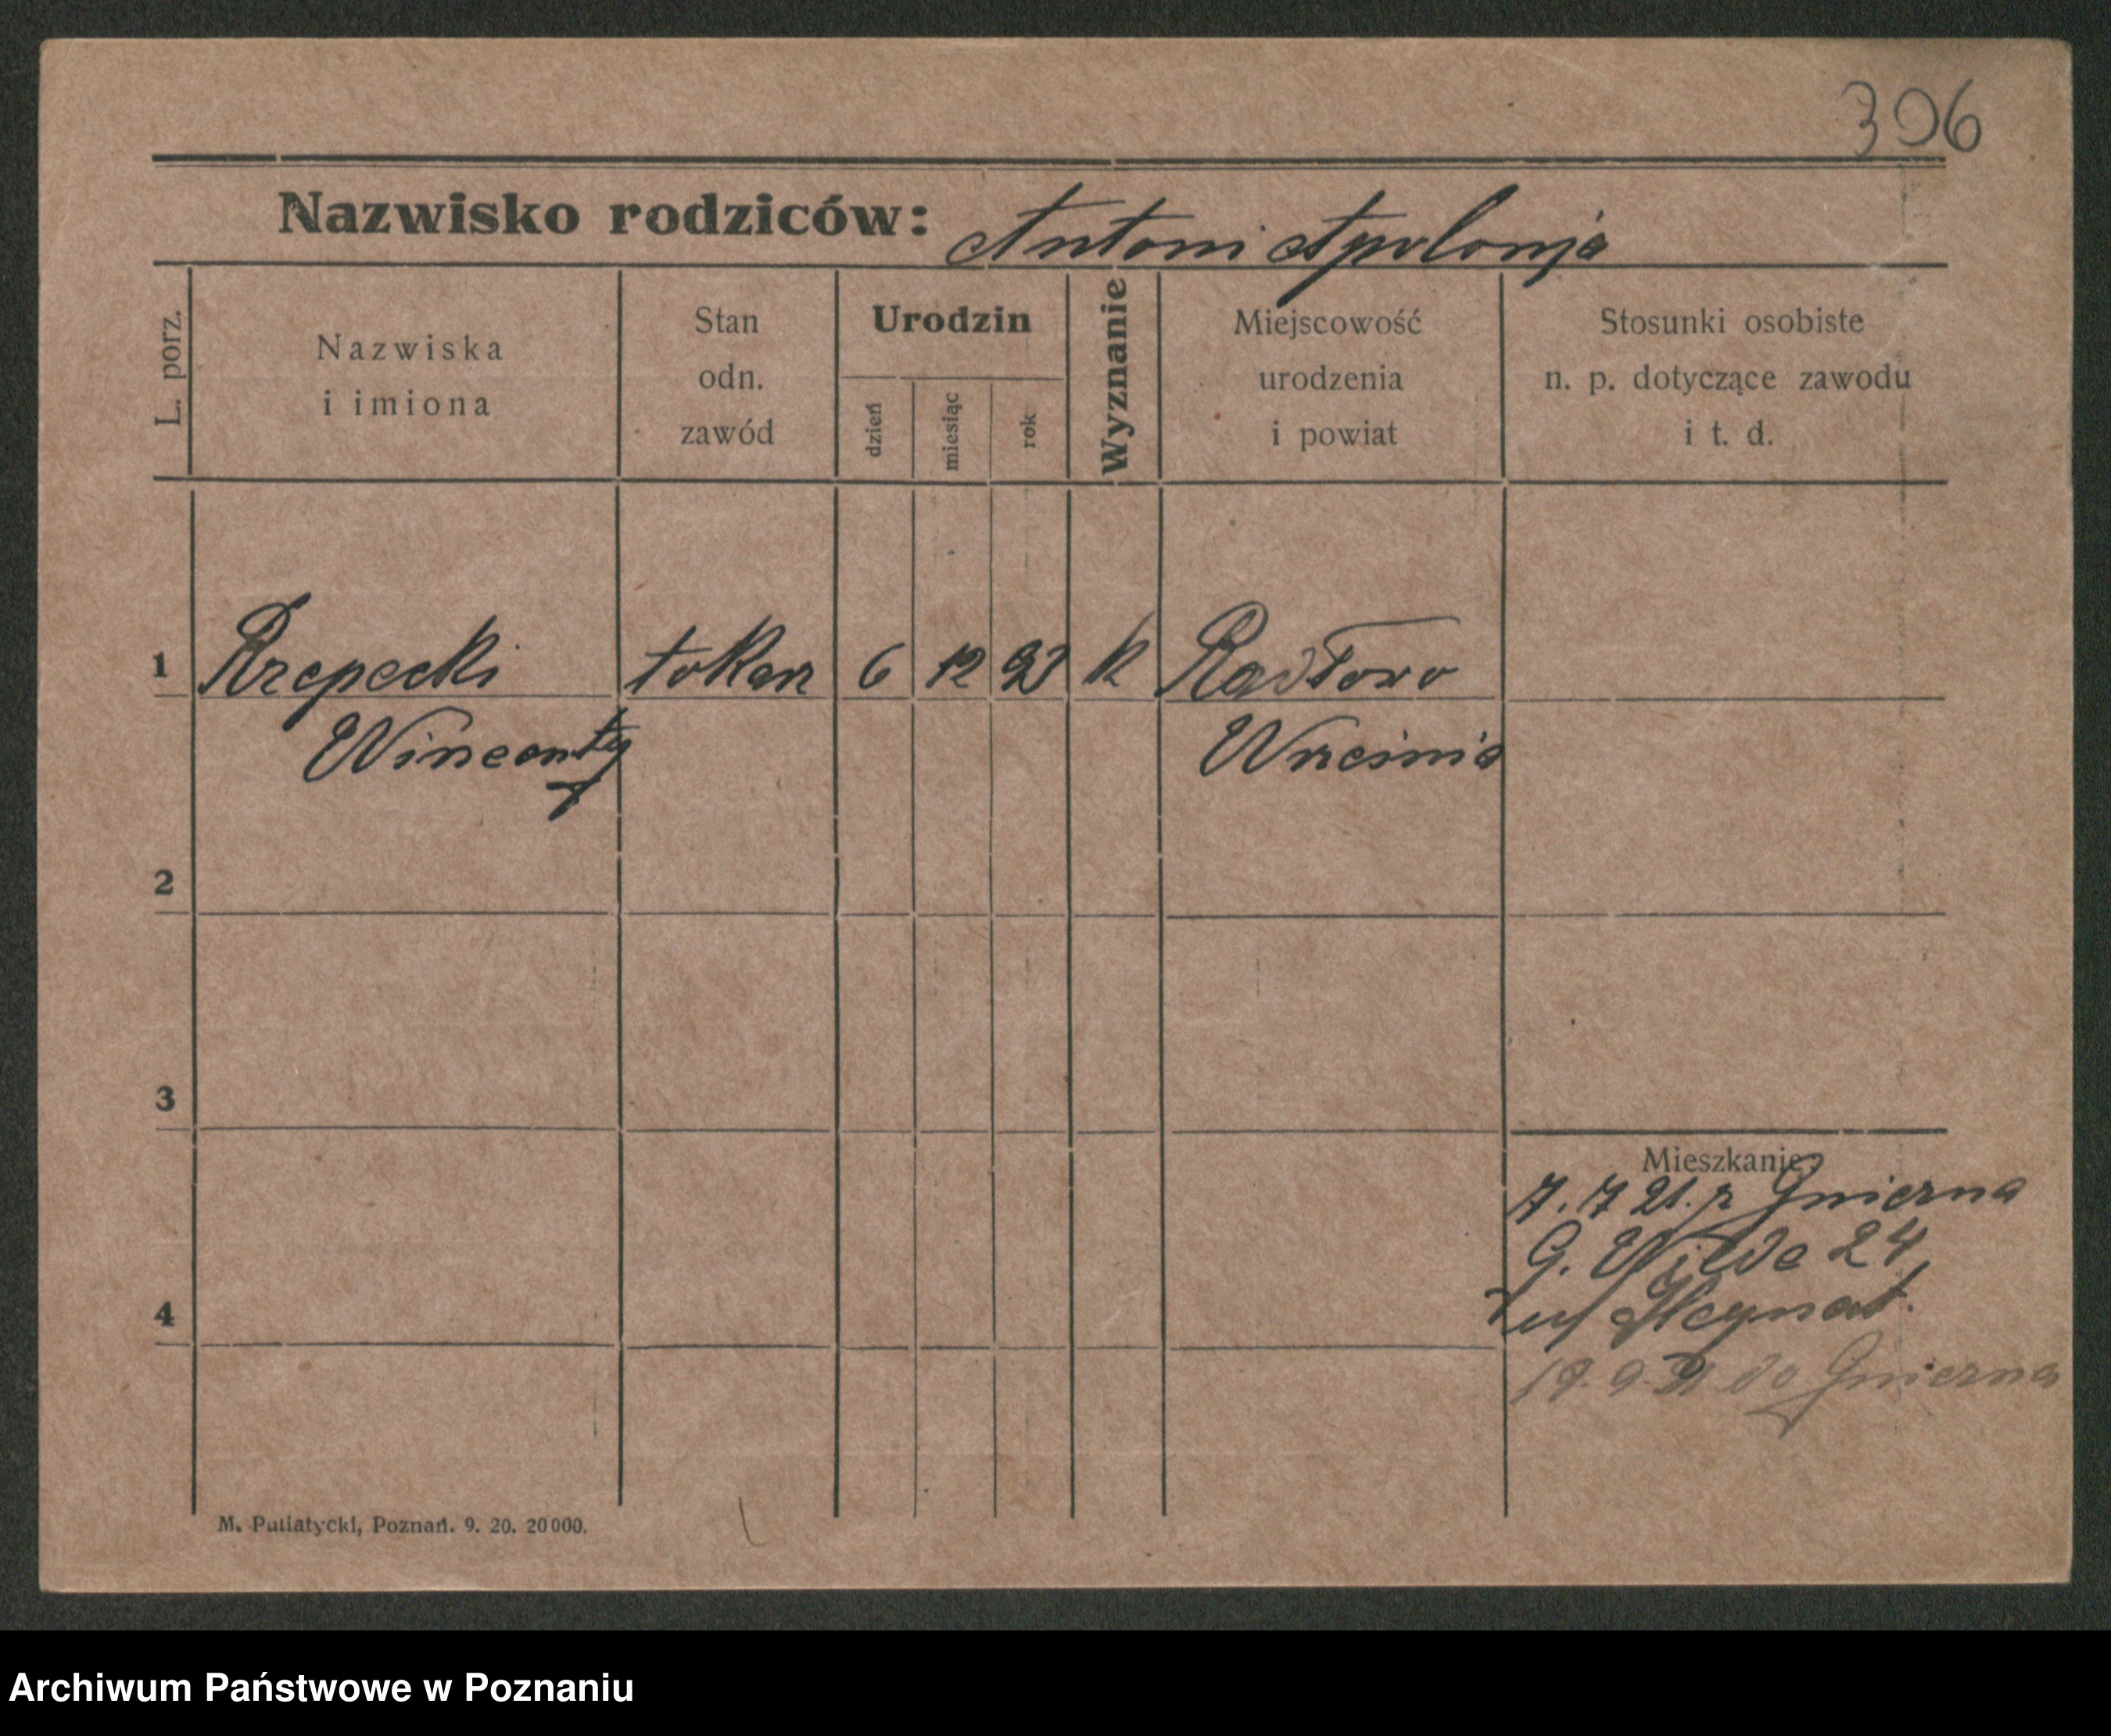 306
Nazwisko rodziców: Antoni Apolonja
L. porz.
Nazwiska
i imiona
Stan
odn.
zawód
Urodzin
dzień
miesiąc
rok
Wyznanie
Miejscowość
urodzenia
i powiat
Stosunki osobiste
n. p. dotyczące zawodu
i t. d.
1 Rzepecki tokarz 6 12 92 k Radłowo
Wincenty Września
2
3
4
Mieszkanie:
7. 7 21. z Gniezna
G. Wilda 24
Heynat.
19. 9. 21 do Gniezna
M. Putiatycki, Poznań. 9. 20. 20000.
Archiwum Państwowe w Poznaniu